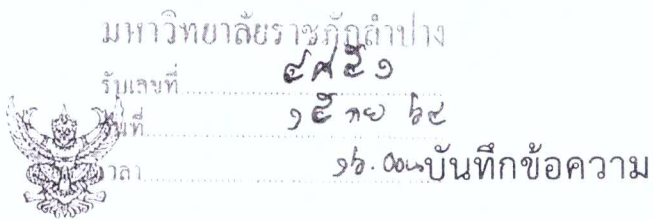 มหาวิทยาลัยราชภัฏลำปาง
รับเลขที่
วันที่ ๑๕ กย ๖๔
เวลา ๑๖.๐๐น
บันทึกข้อความ